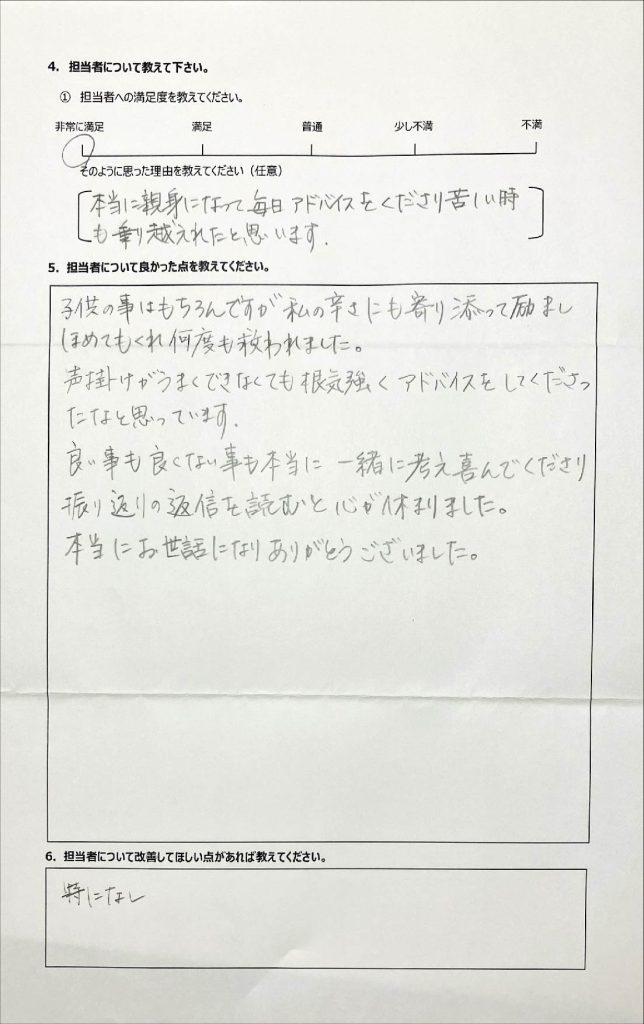 4．担当者について教えて下さい。
① 担当者への満足度を教えてください。
非常に満足 満足 普通 少し不満 不満
そのように思った理由を教えてください（任意）
本当に親身になって毎日アドバイスをくださり苦しい時
も乗り越えれたと思います.
5．担当者について良かった点を教えてください。
子供の事はもちろんですが私の辛さにも寄り添って励まし
ほめてもくれ何度も救われました。
声掛けがうまくできなくても根気強くアドバイスをしてくださっ
たなと思っています.
良い事も良くない事も本当に一緒に考え喜んでくださり
振り返りの返信を読むと心が休まりました。
本当にお世話になりありがとうございました。
6．担当者について改善してほしい点があれば教えてください。
特になし